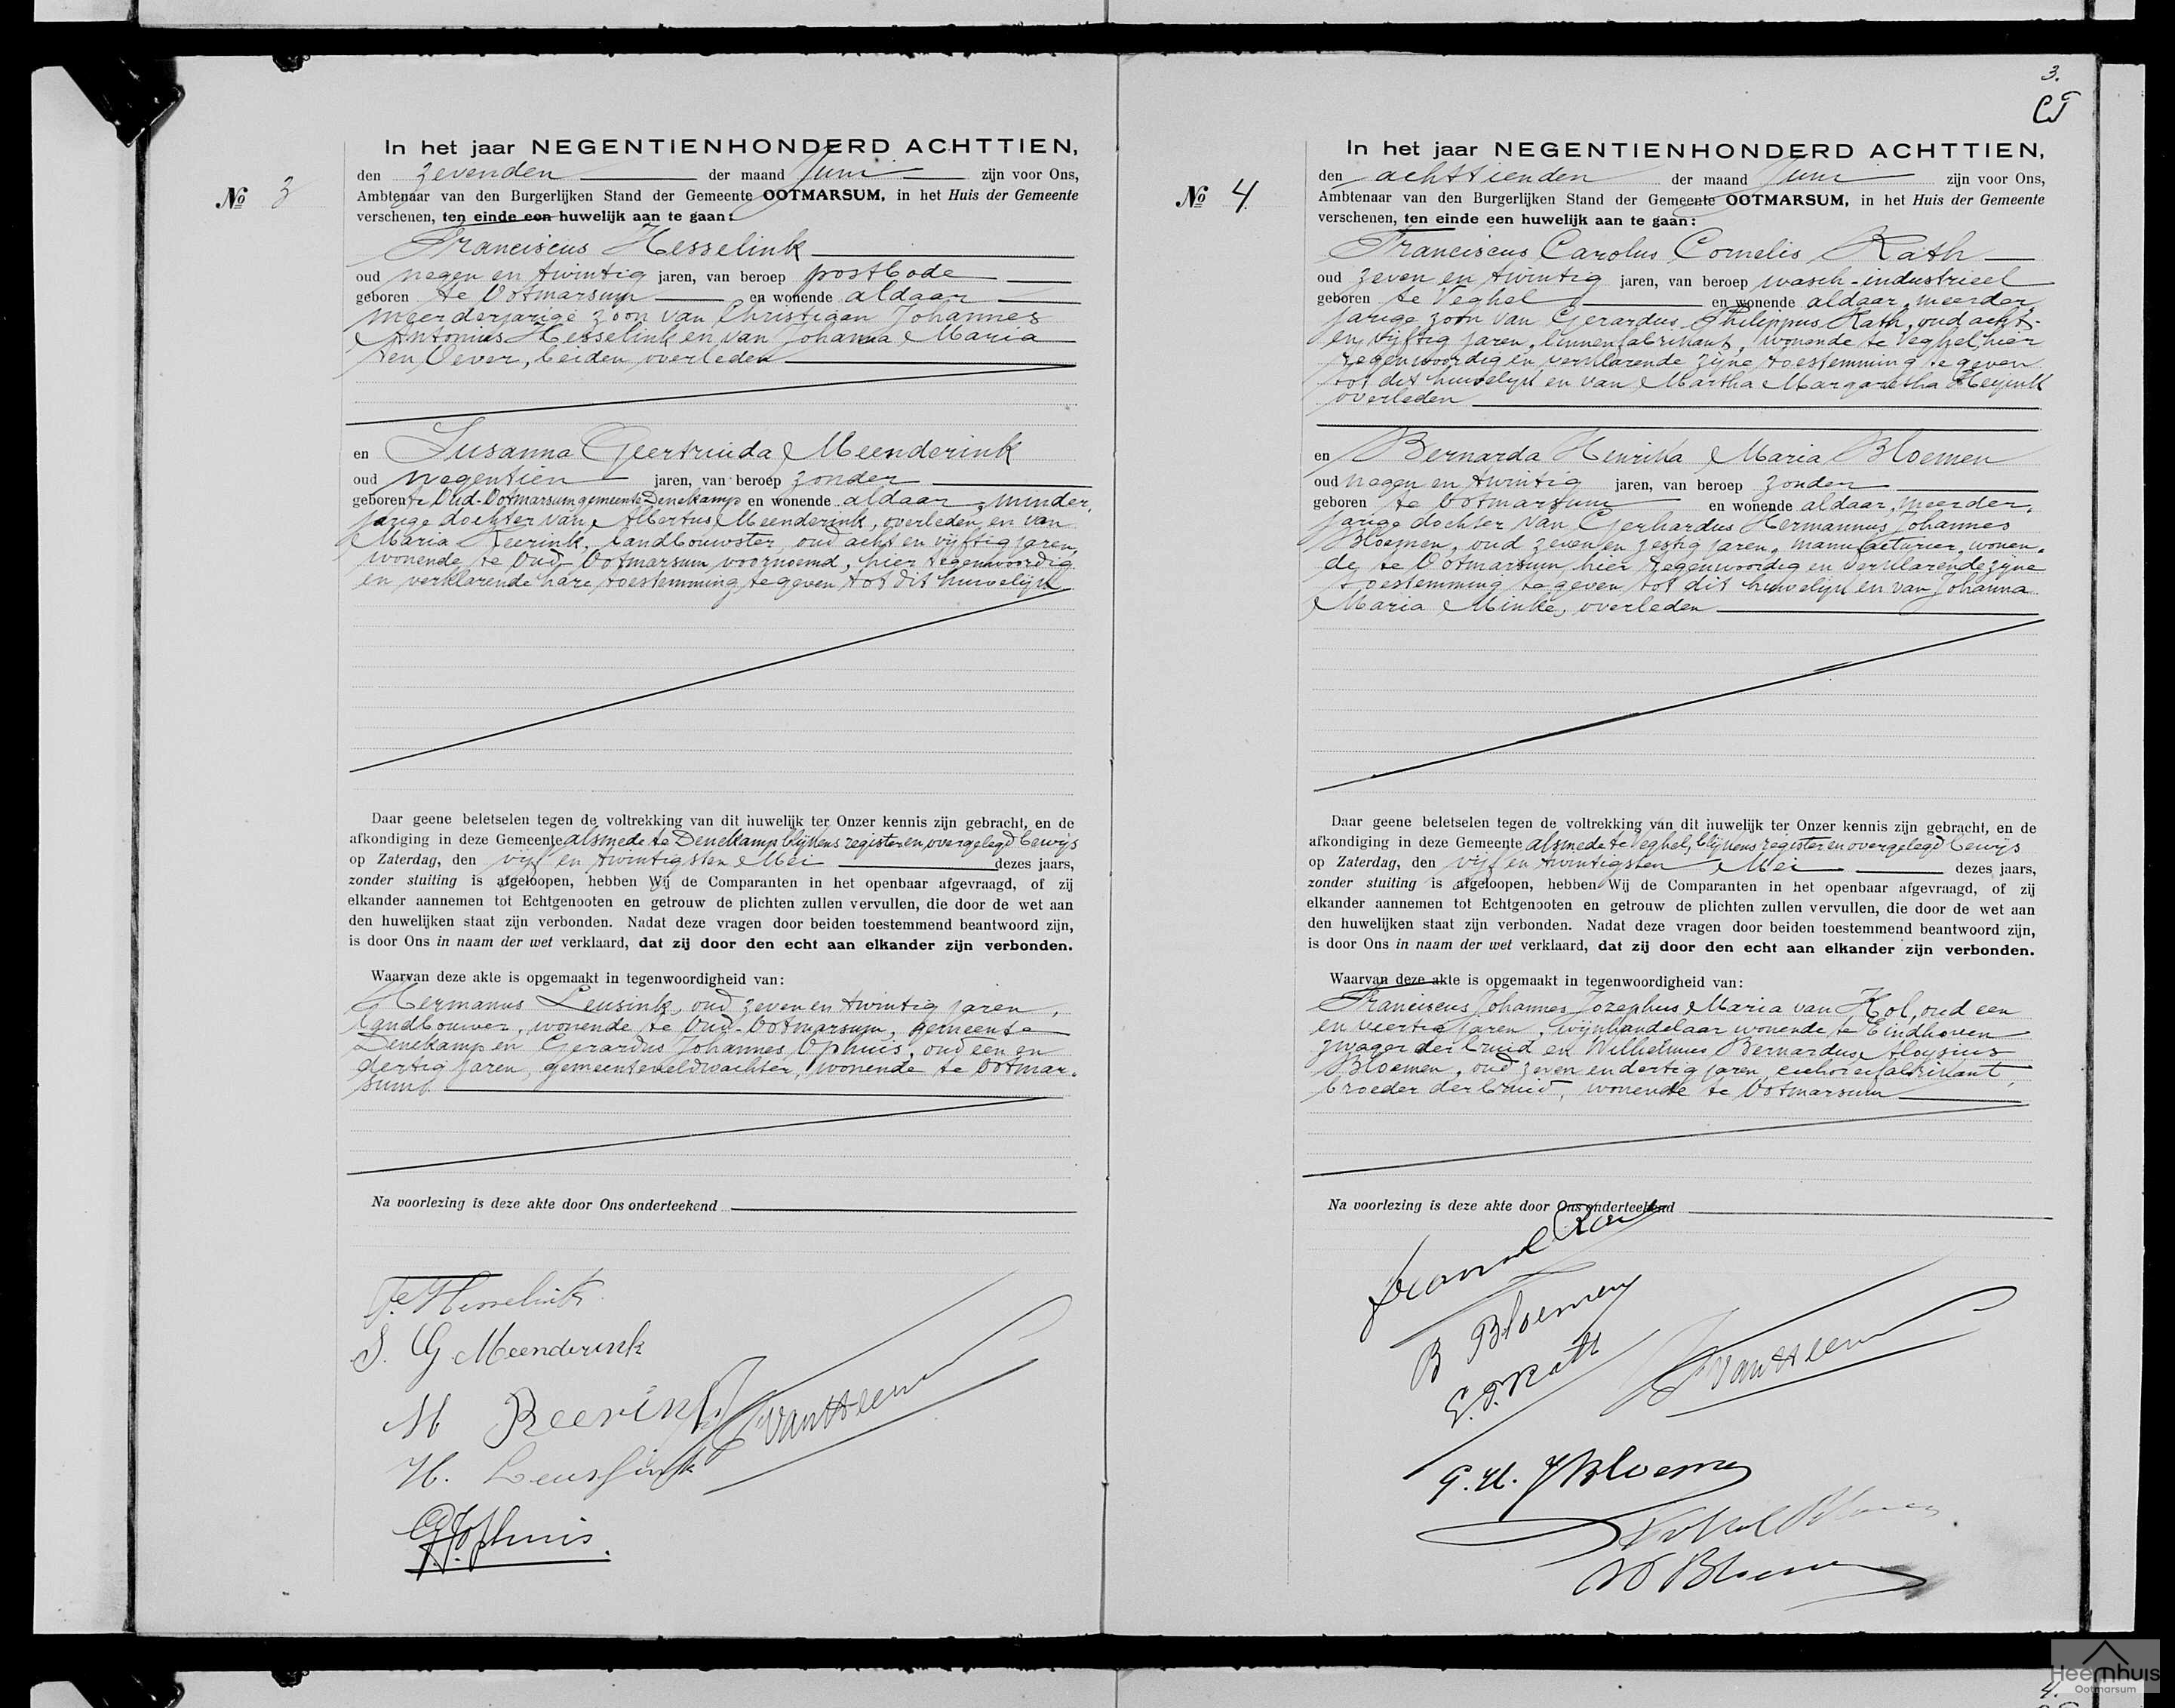 In het jaar NEGENTIENHONDERD ACHTTIEN,
den zevenden der maand Juni zijn voor Ons,
№ 3
Ambtenaar van den Burgerlijken Stand der Gemeente OOTMARSUM, in het Huis der Gemeente
verschenen, ten einde een huwelijk aan te gaan:
Franciscus Hesselink
oud negen en twintig jaren, van beroep postbode
geboren te Ootmarsum en wonende aldaar
meerderjarige zoon van Christiaan Johannes
Antonius Hesselink en van Johanna Maria
ten Oever, beiden overleden
en Susanna Geertruida Meenderink
oud negentien jaren, van beroep zonder
geboren te Oud-Ootmarsum gemeente Denekamp en wonende aldaar, minder,
jarige dochter van Albertus Meenderink, overleden, en van
Maria Reerink, landbouwster, oud acht en vijftig jaren,
wonende te Oud-Ootmarsum voornoemd, hier tegenwoordig
en verklarende hare toestemming te geven tot dit huwelijk
Daar geene beletselen tegen de voltrekking van dit huwelijk ter Onzer kennis zijn gebracht, en de
afkondiging in deze Gemeente alsmede te Denekamp blijkens register en overgelegd bewijs
op Zaterdag, den vijf en twintigsten Mei dezes jaars,
zonder stuiting is afgeloopen, hebben Wij de Comparanten in het openbaar afgevraagd, of zij
elkander aannemen tot Echtgenooten en getrouw de plichten zullen vervullen, die door de wet aan
den huwelijken staat zijn verbonden. Nadat deze vragen door beiden toestemmend beantwoord zijn,
is door Ons in naam der wet verklaard, dat zij door den echt aan elkander zijn verbonden.
Waarvan deze akte is opgemaakt in tegenwoordigheid van:
Hermanus Leusink, oud zeven en twintig jaren,
landbouwer, wonende te Oud-Ootmarsum, gemeente
Denekamp en Gerardus Johannes Ophuis, oud een en
dertig jaren, gemeenteveldwachter, wonende te Ootmar-
sum
Na voorlezing is deze akte door Ons onderteekend
F. Hesselink
S. G Meenderink
M Reerink
van Heem
H. Leussink
G.J. Ophuis.
3.
In het jaar NEGENTIENHONDERD ACHTTIEN,
den achttienden der maand Juni zijn voor Ons,
№ 4
Ambtenaar van den Burgerlijken Stand der Gemeente OOTMARSUM, in het Huis der Gemeente
verschenen, ten einde een huwelijk aan te gaan:
Franciscus Carolus Cornelis Rath
oud zeven en twintig jaren, van beroep wasch-industrieel
geboren te Veghel en wonende aldaar, meerder,
jarige zoon van Gerardus Philippus Rath, oud acht-
en vijftig jaren, linnenfabrikant, wonende te Veghel, hier
tegenwoordig en verklarende zijne toestemming te geven
tot dit huwelijk en van Martha Margaretha Heijink
overleden
en Bernarda Henrika Maria Bloemen
oud negen en twintig jaren, van beroep zonder
geboren te Ootmarsum en wonende aldaar, meerder,
jarige dochter van Gerhardus Hermannus Johannes
Bloemen, oud zeven en zestig jaren, manufacturier, wonen-
de te Ootmarsum, hier tegenwoordig en verklarende zijne
toestemming te geven tot dit huwelijk en van Johanna
Maria Minke, overleden
Daar geene beletselen tegen de voltrekking van dit huwelijk ter Onzer kennis zijn gebracht, en de
afkondiging in deze Gemeente alsmede te Veghel, blijkens register en overgelegd bewijs
op Zaterdag, den vijf en twintigsten Mei dezes jaars,
zonder stuiting is afgeloopen, hebben Wij de Comparanten in het openbaar afgevraagd, of zij
elkander aannemen tot Echtgenooten en getrouw de plichten zullen vervullen, die door de wet aan
den huwelijken staat zijn verbonden. Nadat deze vragen door beiden toestemmend beantwoord zijn,
is door Ons in naam der wet verklaard, dat zij door den echt aan elkander zijn verbonden.
Waarvan deze akte is opgemaakt in tegenwoordigheid van:
Franciscus Johannes Jozephus Maria van Kol, oud een
en veertig jaren, wijnhandelaar wonende te Eindhoven
zwager der bruid en Wilhelmus Bernardus Aloysius
Bloemen, oud zeven en dertig jaren, cichoreifabrikant,
broeder der bruid, wonende te Ootmarsum
Na voorlezing is deze akte door Ons onderteekend
B Bloemen
G. P. Rath
van Heem
G. H. J Bloemen
W Bloemen
Heemhuis
Ootmarsum
4.